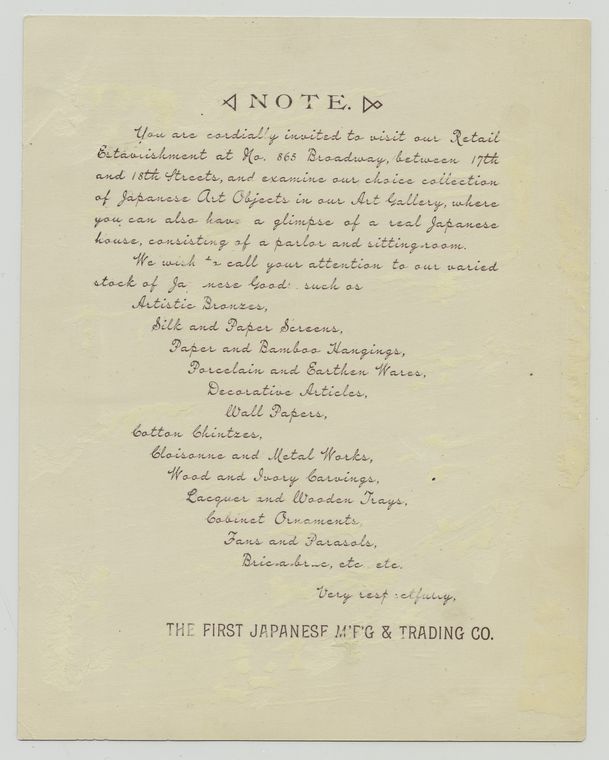 NOTE.
You are cordially invited to visit our Retail
Establishment at No. 865 Broadway, between 17th
and 18th Streets, and examine our choice collection
of Japanese Art Objects in our Art Gallery, where
you can also have a glimpse of a real Japanese
house, consisting of a parlor and sitting-room.
We wish to call your attention to our varied
stock of Japanese Goods such as
Artistic Bronzes,
Silk and Paper Screens,
Paper and Bamboo Hangings,
Porcelain and Earthen Wares,
Decorative Articles,
Wall Papers,
Cotton Chintzes,
Cloisonne and Metal Works,
Wood and Ivory Carvings,
Lacquer and Wooden Trays,
Cabinet Ornaments,
Fans and Parasols,
Bric-a-brac, etc. etc.
Very respectfully,
THE FIRST JAPANESE M'F'G & TRADING CO.